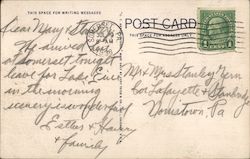 THIS SPACE FOR WRITING MESSAGES
POST CARD
Dear Mary & Stan
We arrived
at Somerset tonight
leave for Lake Erie
in the morning
scenery is wonderful
Esther & Harry
& family
Mr & Mrs Stanley
Cor Lafayette & Stanbridge
Norristown, Pa
1 CENT 1